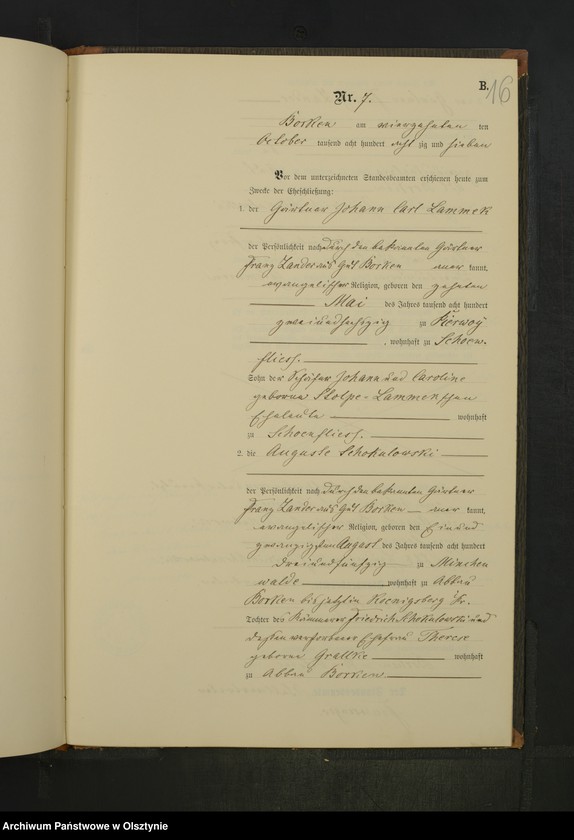 B.
16
Nr. 7.
Borken am vierzehnten ten
October tausend acht hundert acht zig und sieben
Vor dem unterzeichneten Standesbeamten erschienen heute zum
Zwecke der Eheschließung:
1. der Gärtner Johann Carl Lammek
der Persönlichkeit nach durch den bekannten Gärtner
Franz Zander aus Gut Borken aner kannt,
evangelischer Religion, geboren den zehnten
Mai des Jahres tausend acht hundert
zweiundsechszig zu
, wohnhaft zu Schoen-
fliess.
Sohn der Schäfer Johann und Caroline
geborene Stolpe-Lammekschen
Eheleute wohnhaft
zu Schoenfliess.
2. die Auguste Schokolowski
der Persönlichkeit nach durch den bekannten Gärtner
Franz Zander aus Gut Borken aner kannt,
evangelischer Religion, geboren den Einund
zwanzigsten August des Jahres tausend acht hundert
dreiundfünfzig zu München
walde wohnhaft zu Abbau
Borken bis jetzt in Koenigsberg i/Pr.
Tochter des Kämmerer Friedrich Schokolowski und
dessen verstorbener Ehefrau Therese
geborene wohnhaft
zu Abbau Borken
Archiwum Państwowe w Olsztynie